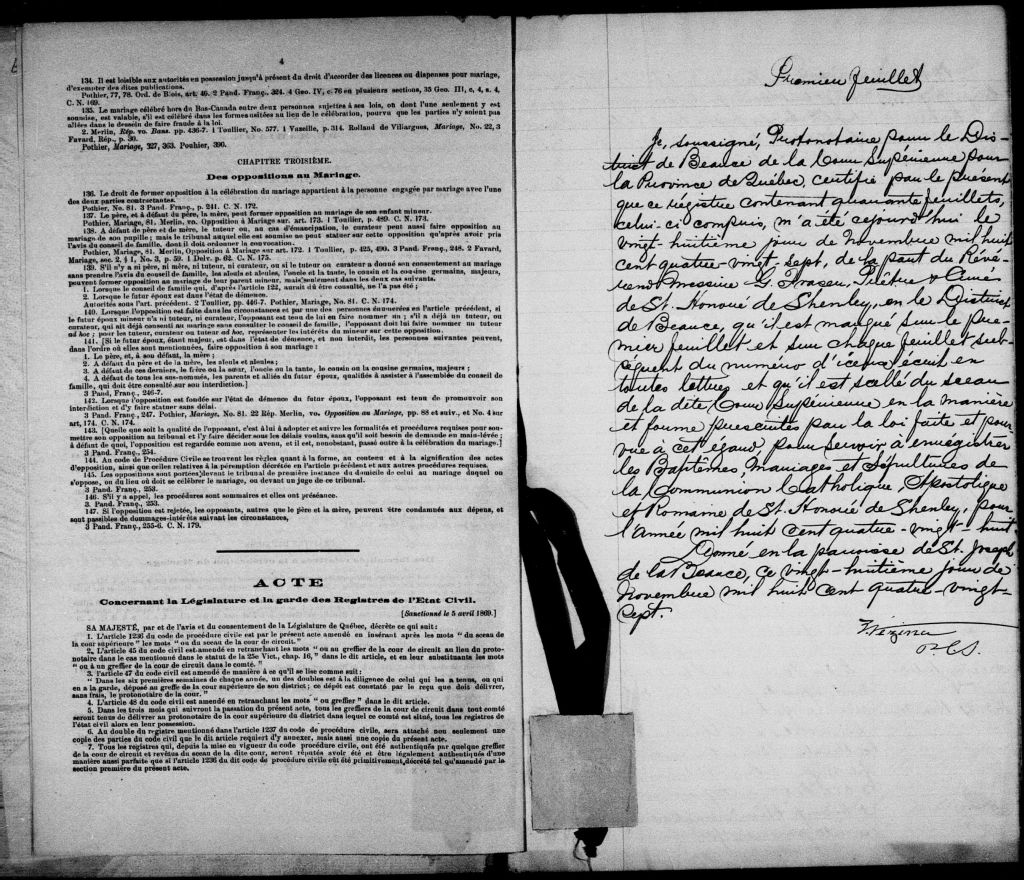 4
134. Il est loisible aux autorités en possession jusqu'à présent du droit d'accorder des licences ou dispenses pour mariage,
d'exempter des dites publications.
Pothier, 77, 78. Ord. de Blois, art. 40. 2 Pand. Franç., 324. 4 Geo. IV, c. 76 en plusieurs sections, 35 Geo. III, c, 4, s. 4,
C. N. 169.
135. Le mariage célébré hors du Bas-Canada entre deux personnes sujettes à ses lois, ou dont l'une seulement y est
soumise, est valable, s'il est célébré dans les formes usitées au lieu de la célébration, pourvu que les parties n'y soient pas
allées dans le dessein de faire fraude à la loi.
2. Merlin, Rép. vo. Bans. pp. 436-7. 1 Toullier, No. 577. 1 Vazeille, p. 314. Rolland de Villargues, Mariage, No. 22, 3
Favard, Rép., p. 30.
Pothier, Mariage, 327, 363. Pouhier, 390.
CHAPITRE TROISIÈME.
Des oppositions au Mariage.
136. Le droit de former opposition à la célébration du mariage appartient à la personne engagée par mariage avec l'une
des deux parties contractantes.
Pothier, No. 81. 3 Pand. Franç., p. 241. C. N. 172.
137. Le père, et à défaut du père, la mère, peut former opposition au mariage de son enfant mineur.
Pothier, Mariage, 81. Merlin, vo. Opposition à Mariage sur. art. 173. 1 Toullier, p. 489. C. N. 173.
138. A défaut de père et de mère, le tuteur ou, au cas d'émancipation, le curateur peut aussi faire opposition au
mariage de son pupille ; mais le tribunal auquel elle est soumise ne peut statuer sur cette opposition qu'après avoir pris
l'avis du conseil de famille, dont il doit ordonner la convocation.
Pothier, Mariage, 81. Merlin, Opposition à Mariage sur art. 172. 1 Toullier, p. 425, 490. 3 Pand. Franç., 248. 2 Favard,
Mariage, sec. 2, § 1, No. 3, p. 59. 1 Delv. p. 62. C. N. 175.
139. S'il n'y a ni père, ni mère, ni tuteur, ni curateur, ou si le tuteur ou curateur a donné son consentement au mariage
sans prendre l'avis du conseil de famille, les aïeuls et aïeules, l'oncle et la tante, le cousin et la cousine germains, majeurs,
peuvent former opposition au mariage de leur parent mineur, mais seulement dans les deux cas suivants.
1. Lorsque le conseil de famille qui, d'après l'article 122, aurait dû être consulté, ne l'a pas été ;
2. Lorsque le futur époux est dans l'état de démence.
Autorités sous l'art. précédent. 2 Toullier, pp. 446-7. Pothier, Mariage, No. 81. C. N. 174.
140. Lorsque l'opposition est faite dans les circonstances et par une des personnes énumérées en l'article précédent, si
le futur époux mineur n'a ni tuteur, ni curateur, l'opposant est tenu de lui en faire nommer un ; s'il a déjà un tuteur, ou
curateur, qui ait déjà consenti au mariage sans consulter le conseil de famille, l'opposant doit lui faire nommer un tuteur
ad hoc ; pour les tuteur, curateur ou tuteur ad hoc, représenter les intérêts du mineur sur cette opposition.
141. [Si le futur époux, étant majeur, est dans l'état de démence, et non interdit, les personnes suivantes peuvent,
dans l'ordre où elles sont mentionnées, faire opposition à son mariage :
1. Le père, et, à son défaut, la mère ;
2. A défaut du père et de la mère, les aïeuls et aïeules ;
3. A défaut de ces derniers, le frère ou la sœur, l'oncle ou la tante, le cousin ou la cousine germains, majeurs ;
4. A défaut de tous les sus-nommés, les parents et alliés du futur époux, qualifiés à assister à l'assemblée du conseil de
famille, qui doit être consulté sur son interdiction.]
3 Pand. Franç., 246-7.
142. Lorsque l'opposition est fondée sur l'état de démence du futur époux, l'opposant est tenu de promouvoir son
interdiction et d'y faire statuer sans délai.
3 Pand. Franç., 247. Pothier, Mariage, No. 81. 22 Rép. Merlin, vo. Opposition au Mariage, pp. 88 et suiv., et No. 4 sur
art, 174. C. N. 174.
143. [Quelle que soit la qualité de l'opposant, c'est à lui à adopter et suivre les formalités et procédures requises pour sou-
mettre son opposition au tribunal et l'y faire décider sous les délais voulus, sans qu'il soit besoin de demande en main-levée ;
à défaut de quoi, l'opposition est regardée comme non avenue, et il est, nonobstant, passé outre à la célébration du mariage.]
3 Pand. Franç., 254.
144. Au code de Procédure Civile se trouvent les règles quant à la forme, au contenu et à la signification des actes
d'opposition, ainsi que celles relatives à la péremption décrétée en l'article précédent et aux autres procédures requises.
145. Les oppositions sont portées devant le tribunal de première instance du domicile de celui au mariage duquel on
s'oppose, ou du lieu où doit se célébrer le mariage, ou devant un juge de ce tribunal.
3 Pand. Franç., 253.
146. S'il y a appel, les procédures sont sommaires et elles ont préséance.
3. Pand. Franç., 253.
147. Si l'opposition est rejetée, les opposants, autres que le père et la mère, peuvent être condamnés aux dépens, et
sont passibles de dommages-intérêts suivant les circonstances,
3 Pand. Franç., 255-6. C. N. 179.
ACTE
Concernant la Législature et la garde des Registres de l'Etat Civil.
[Sanctionné le 5 avril 1869.]
SA MAJESTÉ, par et de l'avis et du consentement de la Législature de Québec, décrète ce qui suit:
1. L'article 1236 du code de procédure civile est par le présent acte amendé en insérant après les mots "du sceau de
la cour supérieure" les mots "ou du sceau de la cour de circuit."
2. L'article 45 du code civil est amendé en retranchant les mots "ou au greffier de la cour de circuit au lieu du proto-
notaire dans le cas mentionné dans le statut de la 25e Vict., chap. 16," dans le dit article, et en leur substituants les mots
"ou à un greffier de la cour de circuit dans le comté."
3. l'article 47 du code civil est amendé de manière à ce qu'il se lise comme suit :
"Dans les six premières semaines de chaque année, un des doubles est à la diligence de celui qui les a tenus, ou qui
en a la garde, déposé au greffe de la cour supérieure de son district ; ce dépôt est constaté par le reçu que doit délivrer,
sans frais, le protonotaire de la cour."
4. L'article 48 du code civil est amendé en retranchant les mots "ou greffier" dans le dit article.
5. Dans les trois mois qui suivront la passation du présent acte, tous les greffiers de la cour de circuit dans tout comté
seront tenus de délivrer au protonotaire de la cour supérieure du district dans lequel ce comté est situé, tous les registres de
l'état civil alors en leur possession.
6. Au double du registre mentionné dans l'article 1237 du code de procédure civile, sera attaché non seulement une
copie des parties du code civil que le dit article requiert d'y annexer, mais aussi une copie du présent acte.
7. Tous les registres qui, depuis la mise en vigueur du code procédure civile, ont été authentiqués par quelque greffier
de la cour de circuit et revêtus du sceau de la dite cour, seront réputés avoir été et être légalement authentiqués d'une
manière aussi parfaite que si l'article 1236 du dit code de procédure civile eût été primitivement décrété tel qu'amendé par la
section première du présent acte.
Premier feuillet
Je, soussigné, Protonotaire pour le Dis-
trict de Beauce de la Cour Supérieure pour
la Province de Québec, certifie par le présent
que ce registre contenant quarante feuillets,
celui-ci compris, m'a été cejourd'hui le
vingt-huitième jour de Novembre mil huit
cent quatre-vingt sept, de la part du Révé-
rend Messire G. Fraser, Prêtre & Curé
de St. Honoré de Shenley, en le District
de Beauce, qu'il est marqué sur le pre-
mier feuillet et sur chaque feuillet sub-
séquent du numéro d'iceux écrit en
toutes lettres et qu'il est scellé du sceau
de la dite Cour Supérieure en la manière
et forme prescrites par la loi faite et pour-
vue à cet égard, pour servir à enregistrer
les Baptêmes, Mariages et Sépultures de
la Communion Catholique, Apostolique
et Romaine de St. Honoré de Shenley, pour
l'année mil huit cent quatre-vingt-huit.
Donné en la paroisse de St. Joseph
de la Beauce, ce vingt-huitième jour de
Novembre mil huit cent quatre-vingt-
sept.
Vézina
P.C.S.